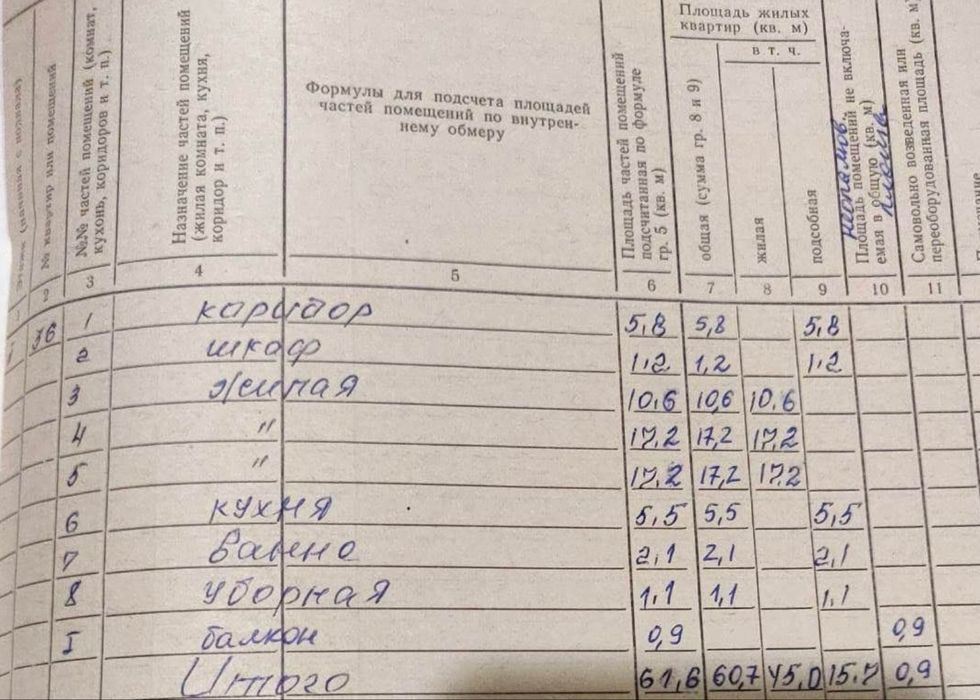 Этажи (начиная с подвала)
№ квартир или помещений
№№ частей помещений (комнат, кухонь, коридоров и т. п.)
Назначение частей помещений (жилая комната, кухня, коридор и т. п.)
Формулы для подсчета площадей
частей помещений по внутрен-
нему обмеру
Площадь частей помещений подсчитанная по формуле гр. 5 (кв. м)
Площадь жилых
квартир (кв. м)
общая (сумма гр. 8 и 9)
в т. ч.
жилая
подсобная
Площадь помещений не включа-емая в общую (кв. м)
Самовольно возведенная или переоборудованная площадь (кв. м)
2 3 4 5 6 7 8 9 10 11
76 1 каридор 5,8 5,8 5,8
2 шкаф 1.2 1,2 1.2
3 Жилая 10.6 10,6 10.6
4 " 17.2 17,2 17,2
5 " 17.2 17,2 17,2
6 кухня 5,5 5,5 5,5
7 Ванно 2,1 2,1 2,1
8 Уборная 1,1 1,1 1,1
I балкон 0,9 0,9
Итого 61,6 60,7 45,0 15.7 0,9